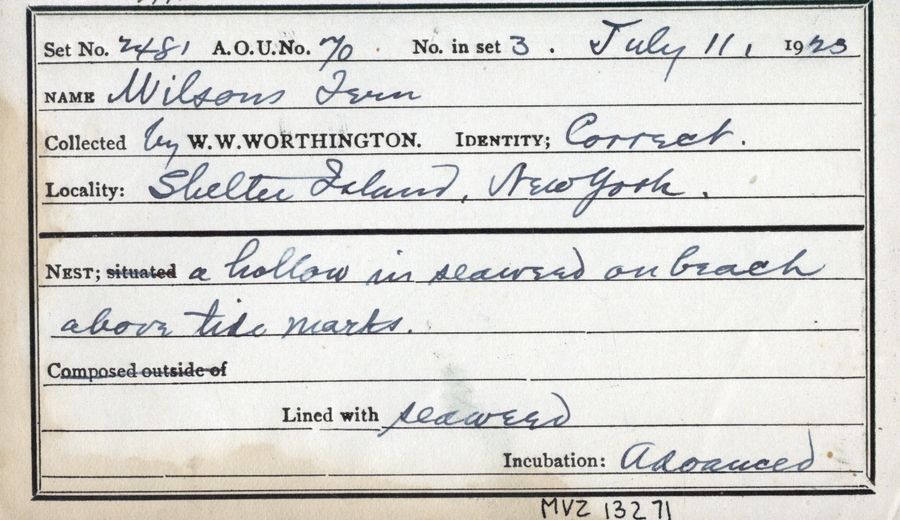 Set No. 2481 A.O.U.No. 70 . No. in set 3 . July 11, 1923
NAME Wilsons Tern
Collected by W.W.WORTHINGTON. IDENTITY; Correct.
Locality: Shelter Island, New York.
NEST; situated a hollow in seaweed on beach
above tide marks.
Composed outside of
Lined with seaweed
Incubation: Advanced
MVZ 13271